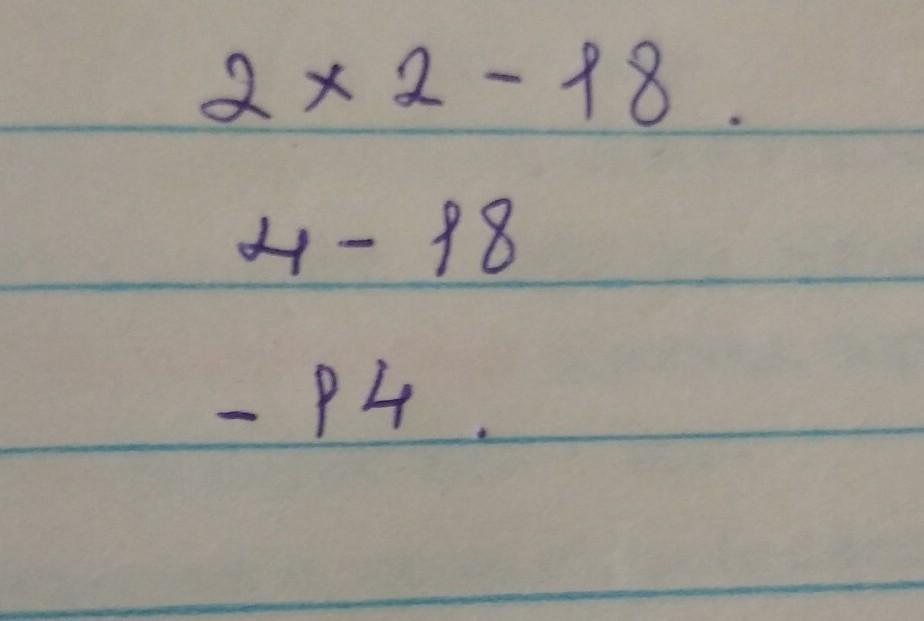 2 × 2 - 18 .
4 - 18
- 14 .